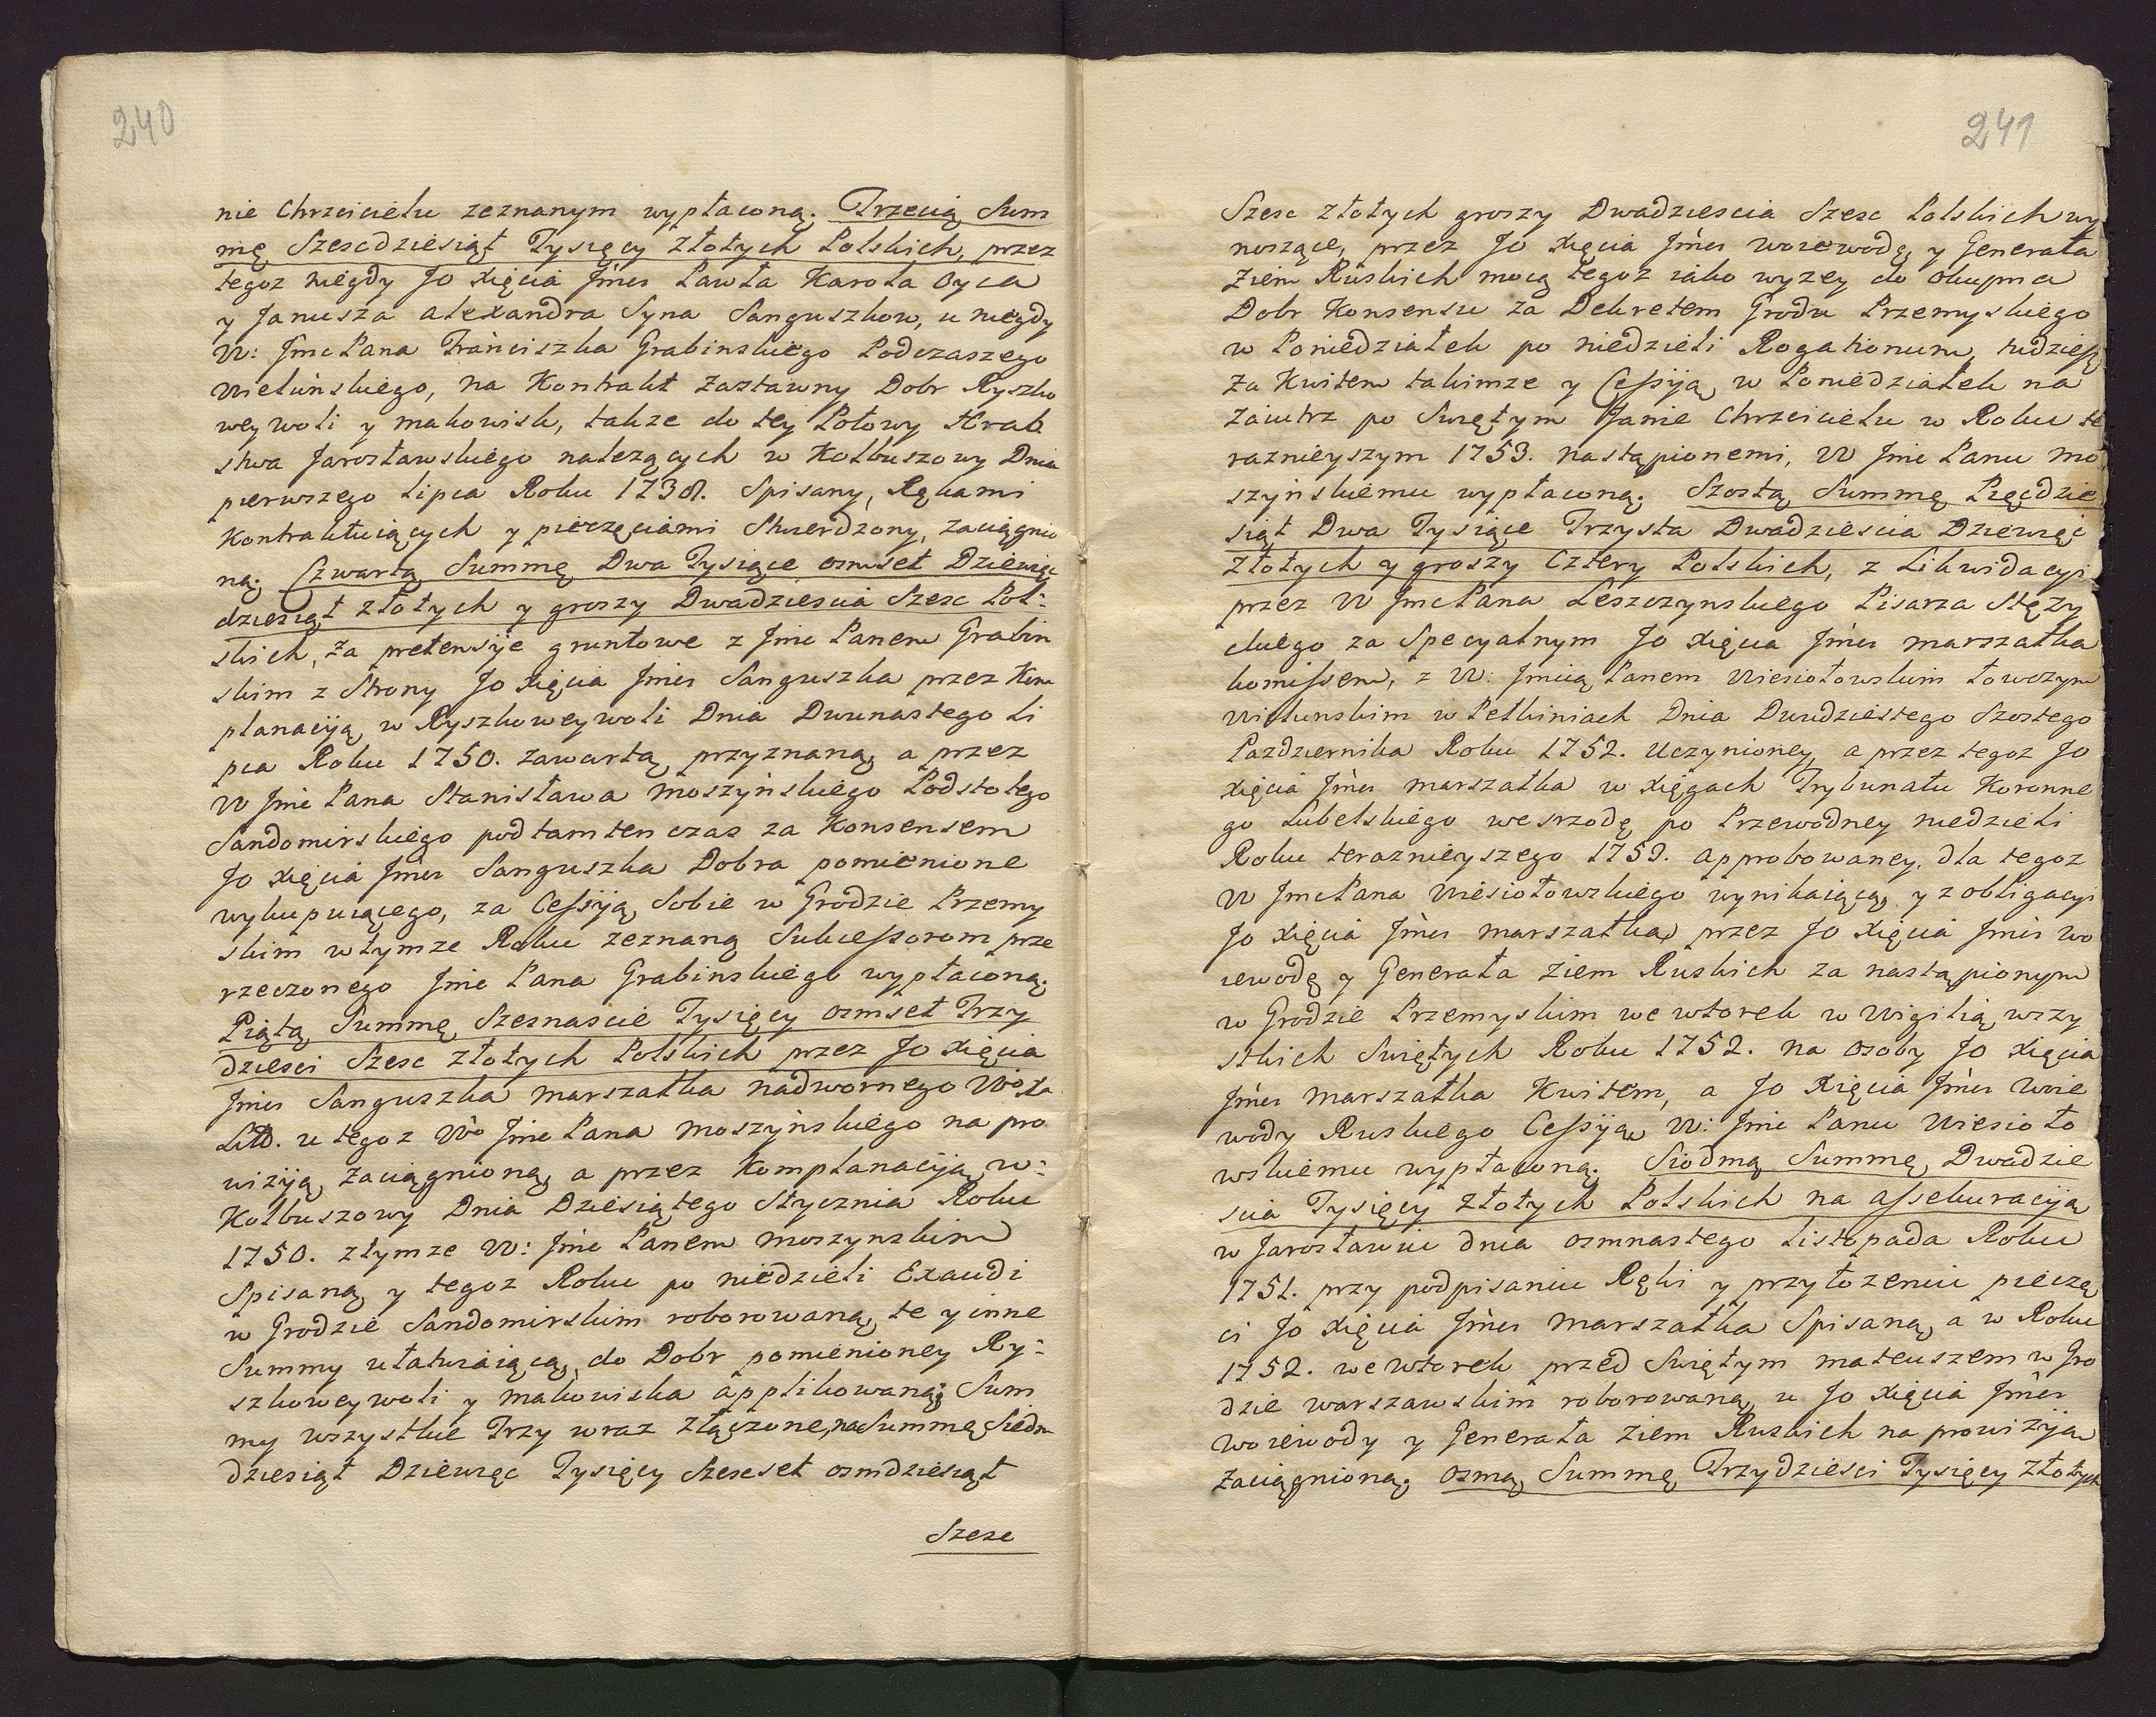 240
nie Chrzcicielu zeznanym wypłaconą. Trzecią Sum
mę Szescdziesiąt Tysięcy Złotych Polskich, przez
tegoz niegdy Jo Xięcia Jmci Pawła Karola Oyca
y Janusza Alexandra Syna Sanguszkow, u niegdy
W: Jmc Pana Franciszka Grabinskiego Podczaszego
Wieluńskiego, na Kontrakt Zastawny Dobr Ryszko
wey woli y makowisk, takze do tey Połowy Hrab
stwa Jarosławskiego nalezących w Kolbuszowy Dnia
pierwszego Lipca Roku 1738. Spisany, Rękami
Kontraktuiących y pieczęciami Stwierdzony, zaciągnio
ną. Czwartą Summę Dwa Tysiące osmset Dziewięc
dziesiąt złotych y groszy Dwadziescia Szesc Pol-
skich, za pretensije gruntowe z Jmc Panem Grabin
skim z Strony Jo Xięcia Jmci Sanguszka przez Kom
planacyją w Ryszkoweywoli Dnia Dwunastego Li
pca Roku 1750. zawartą, przyznaną, a przez
W Jmc Pana Stanisława Moszyńskiego Podstolego
Sandomirskiego pod tamten czas za Konsensem
Jo Xięcia Jmci Sanguszka Dobra pomienione
wykupuiącego, za Cessyją Sobie w Grodzie Przemy
skim w tymze Roku zeznaną Sukcessorom prze
rzeczonego Jmc Pana Grabinskiego wypłaconą.
Piątą Summę Szesnascie Tysięcy osmset Trzy
dziesci Szesc złotych Polskich przez Jo Xięcia
Jmci Sanguszka Marszałka nadwornego Wo Xa
Litt. u tegoz Wo Jmc Pana Moszyńskiego na pro
wizyją zaciągnioną, a przez Komplanacyją w-
Kolbuszowy Dnia Dziesiątego Stycznia Roku
1750. z tymze W: Jmc Panem Moszynskim
Spisaną y tegoz Roku po niedzieli Exaudi
w Grodzie Sandomirskim roborowaną, te y inne
Summy ułatwiaiącą, do Dobr pomienioney Ry-
szkoweywoli y makowiska applikowaną; Sum
my wszystkie Trzy wraz złączone, na Summę Siedm
dziesiąt Dziewięc Tysięcy Szescset osmdziesiąt
Szesc
241
Szesc złotych groszy Dwadziescia Szesc Polskich wy
noszące, przez Jo Xięcia Jmci woiewodę y Generała
Ziem Ruskich mocą tegoz iako wyzey do okupna
Dobr Konsensu za Dekretem Grodu Przemyskiego
w Poniedziałek po niedzieli Rogationum, tudziesz
Za Kwitem takimze y Cessyją w Poniedziałek na
zaiutrz po Swiętym Janie Chrzcicielu w Roku te
raznieyszym 1753. nastąpionemi, W Jmc Panu Mo
szyńskiemu wypłaconą. Szostą Summę Pięcdzie
siąt Dwa Tysiące Trzysta Dwadziescia Dziewięc
Złotych y groszy Cztery Polskich, z Likwidacyi
przez W Jmc Pana Leszczynskiego Pisarza Stęzy
ckiego za Specyalnym Jo Xięcia Jmci marszałka
komissem, z W: Jmcią Panem Wiesiołowskim Łowczym
Wieluńskim w Pełkiniach Dnia Dwudziestego Szostego
Pazdziernika Roku 1752. Uczynioney, a przez tegoz Jo
Xięcia Jmci marszałka w Xięgach Trybunału Koronne
go Lubelskiego we srzodę po Przewodney niedzieli
Roku teraznieyszego 1753. approbowaney, dla tegoz
W Jmc Pana Wiesiołowskiego wynikaiącą, y z obligacyi
Jo Xięcia Jmci marszałka, przez Jo Xięcia Jmci wo
iewodę y Generała Ziem Ruskich za nastąpionym
w Grodzie Przemyskim we wtorek w Wigilią wszy
stkich Swiętych Roku 1752. na osoby Jo Xięcia
Jmci Marszałka Kwitem, a Jo Xięcia Jmci Woie
wody Ruskiego Cessyją W: Jmc Panu Wiesioło
wskiemu wypłaconą. Siodmą Summę Dwadzie
scia Tysięcy Złotych Polskich na assekuracyją
w Jarosławiu dnia osmnastego Listopada Roku
1751. przy podpisaniu Ręki y przyłozeniu pieczę
ci Jo Xięcia Jmci Marszałka Spisaną, a w Roku
1752. we wtorek przed Swiętym mateuszem w Gro
dzie warszawskim roborowaną, u Jo Xięcia Jmci
Woiewody y Generała Ziem Ruskich na prowizyją
zaciągnioną. Osmą Summę Trzydziesci Tysięcy Złotych